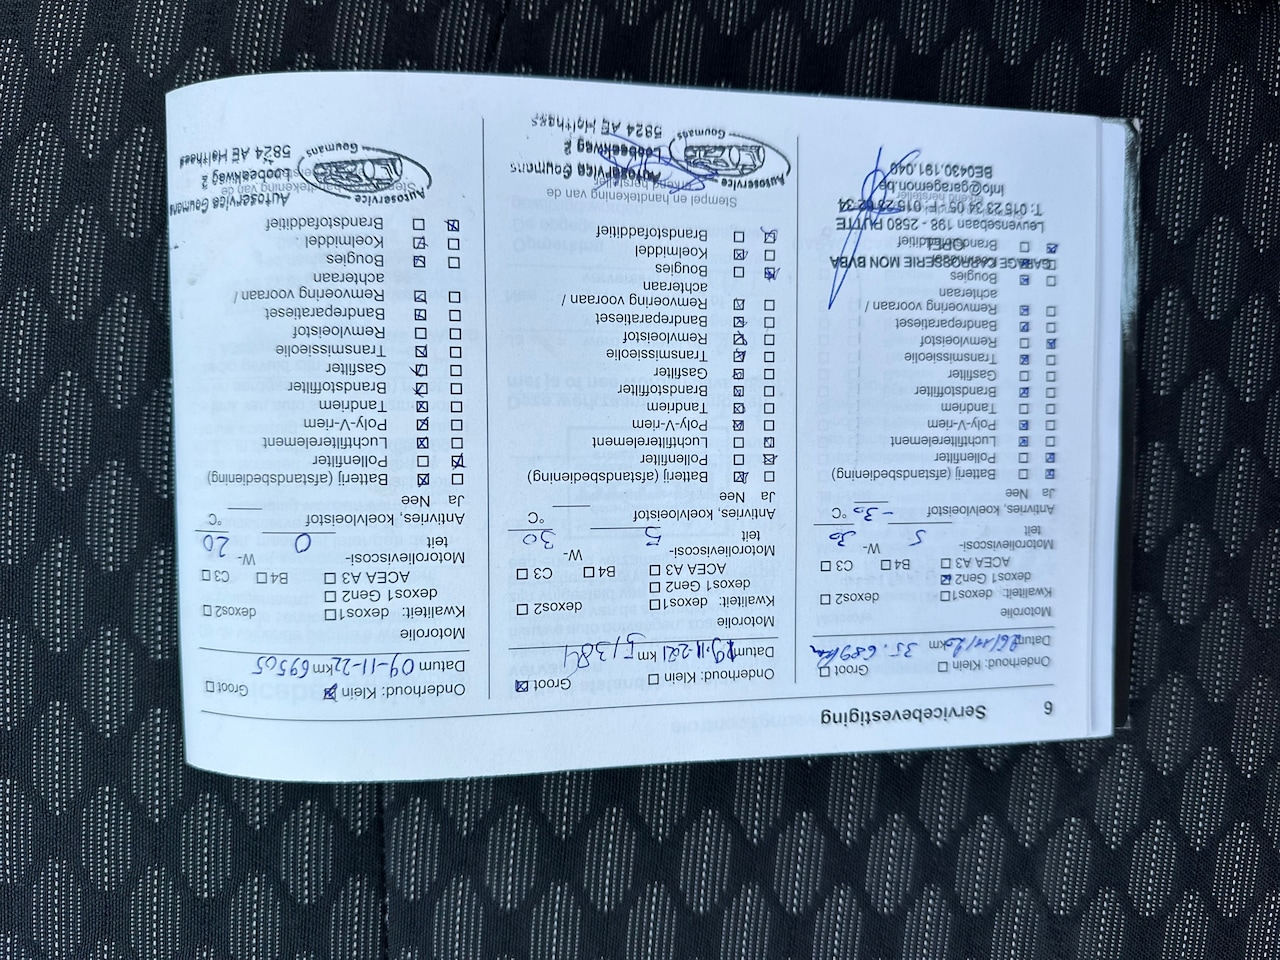 6 Servicebevestiging
Onderhoud: Klein Groot
Datum km 35.689 km
Motorolie
Kwaliteit: dexos1 dexos2
dexos1 Gen2
ACEA A3 B4 C3
Motorolieviscosi- 5 W- 30
teit
Antivries, koelvloeistof -30 °C
Ja Nee
Batterij (afstandsbediening)
Pollenfilter
Luchtfilterelement
Poly-V-riem
Tandriem
Brandstoffilter
Gasfilter
Transmissieolie
Remvloeistof
Bandreparatieset
Remvoering vooraan /
achteraan
Bougies
Koelmiddel
Brandstofadditief
GARAGE CARROSSERIE MON BVBA
OPEL
Leuvensebaan 198 - 2580 PUTTE
T: 015 23 34 05 - F: 015 23 02 34
info@garagemon.be
BE0430.191.040
Onderhoud: Klein Groot
Datum 19-11-221 km 51384
Motorolie
Kwaliteit: dexos1 dexos2
dexos1 Gen2
ACEA A3 B4 C3
Motorolieviscosi-
teit 5 W- 30
Antivries, koelvloeistof °C
Ja Nee
Batterij (afstandsbediening)
Pollenfilter
Luchtfilterelement
Poly-V-riem
Tandriem
Brandstoffilter
Gasfilter
Transmissieolie
Remvloeistof
Bandreparatieset
Remvoering vooraan /
achteraan
Bougies
Koelmiddel
Brandstofadditief
Stempel en handtekening van de
erkend hersteller
Autoservice Goumans
Loobeekweg 2
5824 AE Holthees
Autoservice
Goumans
Onderhoud: Klein Groot
Datum 09-11-22 km 69505
Motorolie
Kwaliteit: dexos1 dexos2
dexos1 Gen2
ACEA A3 B4 C3
Motorolieviscosi-
teit 0 W- 20
Antivries, koelvloeistof °C
Ja Nee
Batterij (afstandsbediening)
Pollenfilter
Luchtfilterelement
Poly-V-riem
Tandriem
Brandstoffilter
Gasfilter
Transmissieolie
Remvloeistof
Bandreparatieset
Remvoering vooraan /
achteraan
Bougies
Koelmiddel
Brandstofadditief
Autoservice Goumans
Loobeekweg 2
5824 AE Holthees
Autoservice
Goumans